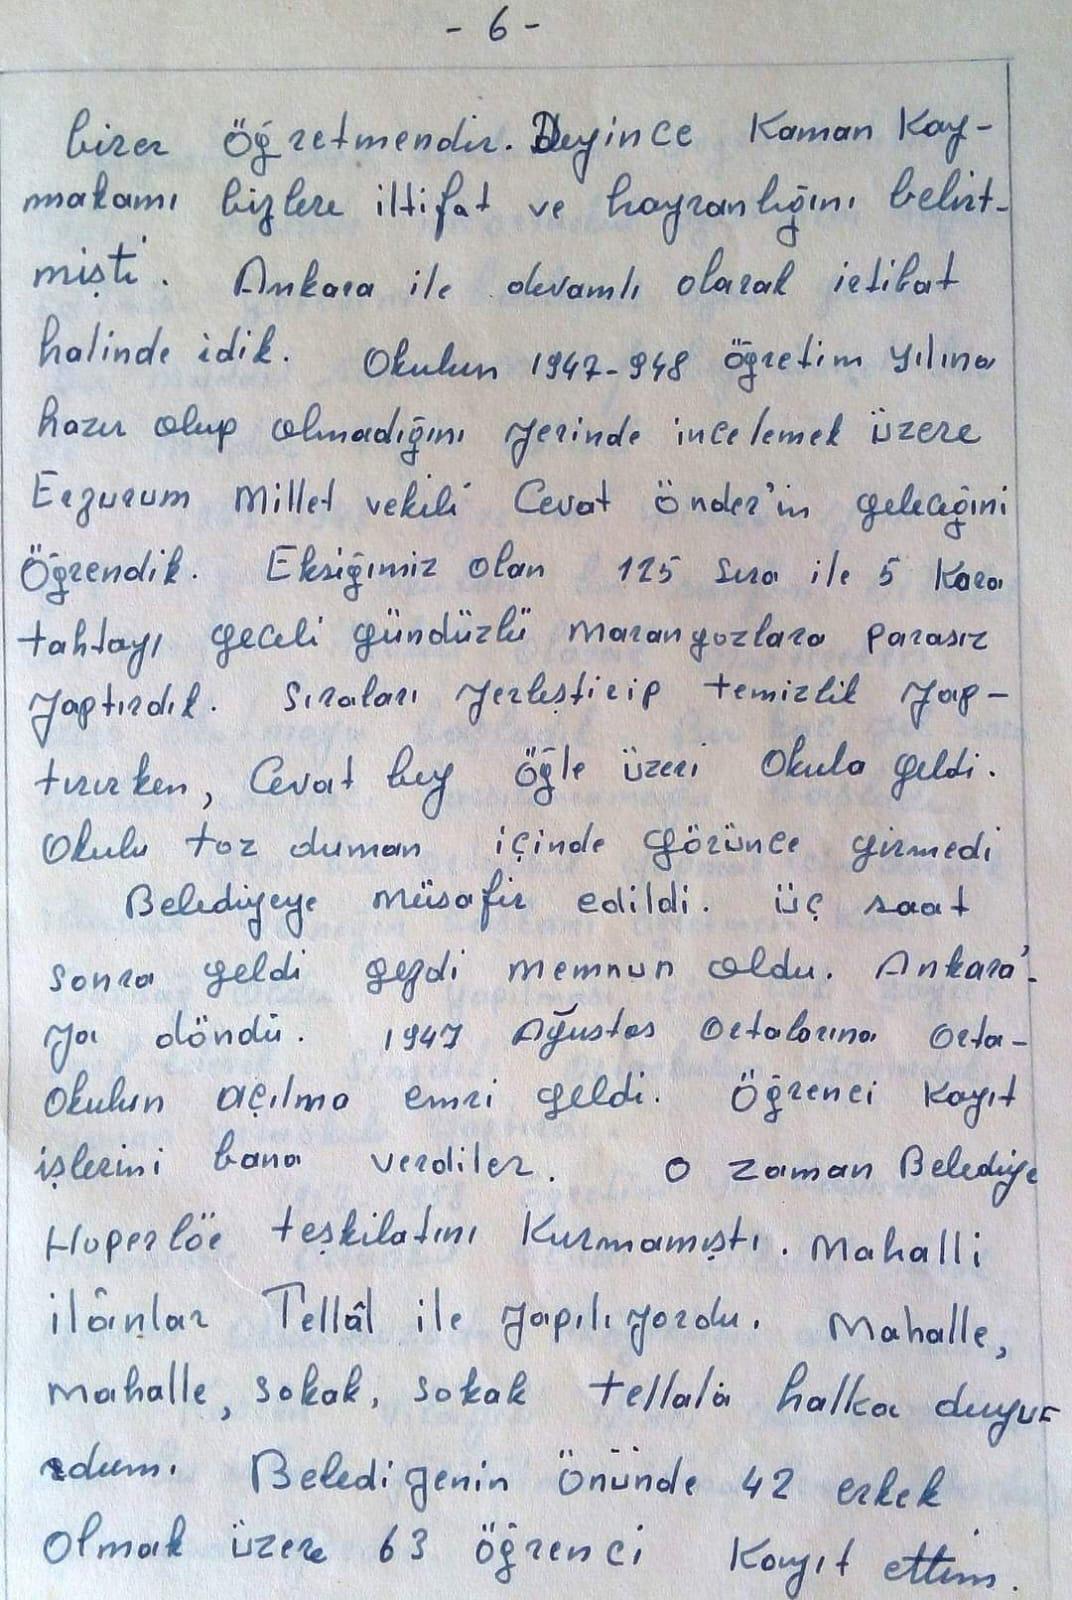 - 6 -
birer Öğretmendir. Deyince Kaman Kay-
makamı bizlere iltifat ve hayranlığını belirt-
mişti. Ankara ile devamlı olarak irtibat
halinde idik. Okulun 1947-948 öğretim yılına
hazır olup olmadığını yerinde incelemek üzere
Erzurum Millet vekili Cevat önder'in geleceğini
Öğrendik. Eksiğimiz olan 125 Sıra ile 5 Kara
tahtayı geceli gündüzlü marangozlara parasız
yaptırdık. Sıraları yerleştirip temizlik yap-
tırırken, Cevat bey öğle üzeri Okula geldi.
Okulu toz duman içinde görünce girmedi
Belediyeye müsafir edildi. üç saat
sonra geldi gezdi memnun oldu. Ankara'-
ya döndü. 1947 Ağustos Ortalarına Orta-
Okulun açılma emri geldi. Öğrenci Kayıt
işlerini bana verdiler. O zaman Belediye
Huperlöe teşkilatını Kurmamıştı. Mahalli
ilânlar Tellâl ile yapılıyordu. Mahalle,
Mahalle, Sokak, Sokak tellala halka duyur
rdum. Beledigenin önünde 42 erkek
Olmak üzere 63 öğrenci Kayıt ettim.